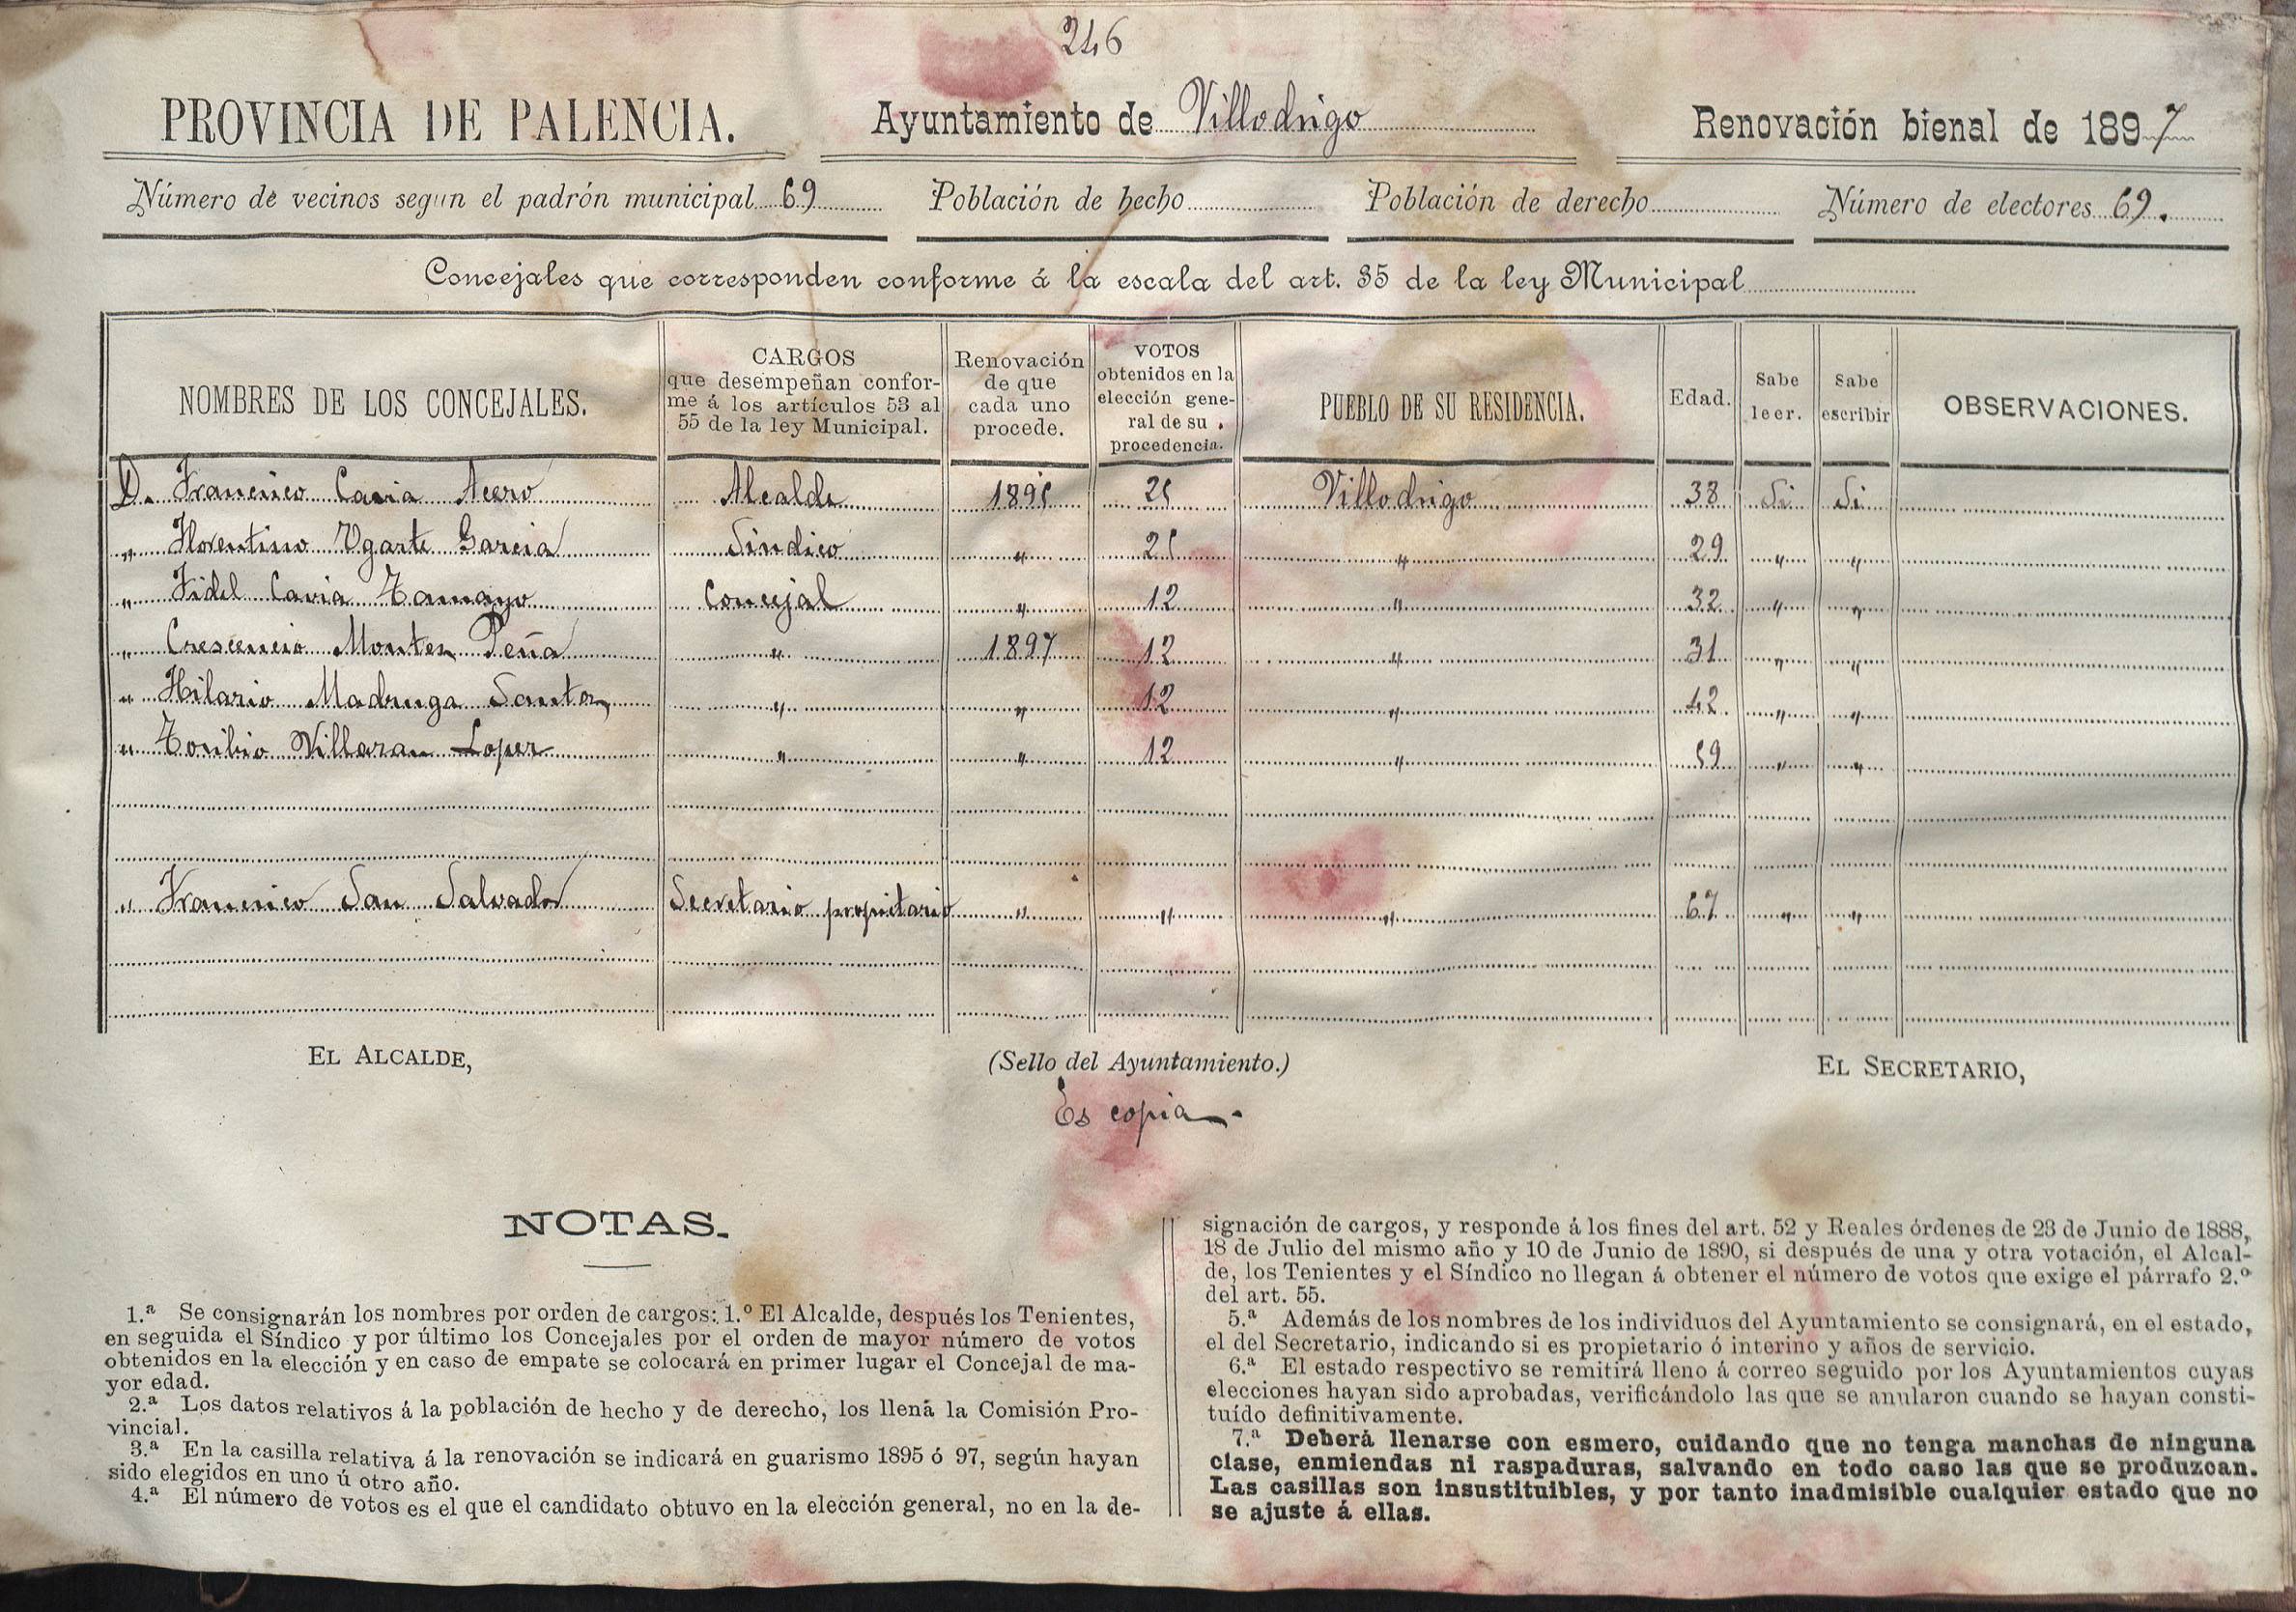 246
PROVINCIA DE PALENCIA. Ayuntamiento de Villodrigo Renovación bienal de 1897
Número de vecinos según el padrón municipal 69 Población de hecho Población de derecho Número de electores 69.
Concejales que corresponden conforme á la escala del art. 35 de la ley Municipal
NOMBRES DE LOS CONCEJALES.
CARGOS
que desempeñan confor-
me á los artículos 53 al
55 de la ley Municipal.
Renovación
de que
cada uno
procede.
VOTOS
obtenidos en la
elección gene-
ral de su
procedencia.
PUEBLO DE SU RESIDENCIA.
Edad.
Sabe
leer.
Sabe
escribir
OBSERVACIONES.
D. Francisco Cavia Acero Alcalde 1895 25 Villodrigo 38 Si Si
" Florentino Ugarte Garcia Sindico " 25 " 29 " "
" Fidel Cavia Tamayo Concejal " 12 " 32 " "
" Crescencio Montes Peña " 1897 12 " 31 " "
" Hilario Madruga Santos " " 12 " 42 " "
" Toribio Villaran Lopez " " 12 " 59 " "
" Francisco San Salvador Secretario propietario " " " 67 " "
EL ALCALDE, (Sello del Ayuntamiento.) EL SECRETARIO,
Es copia.
NOTAS.
1.ª Se consignarán los nombres por orden de cargos: 1.º El Alcalde, después los Tenientes,
en seguida el Síndico y por último los Concejales por el orden de mayor número de votos
obtenidos en la elección y en caso de empate se colocará en primer lugar el Concejal de ma-
yor edad.
2.ª Los datos relativos á la población de hecho y de derecho, los llena la Comisión Pro-
vincial.
3.ª En la casilla relativa á la renovación se indicará en guarismo 1895 ó 97, según hayan
sido elegidos en uno ú otro año.
4.ª El número de votos es el que el candidato obtuvo en la elección general, no en la de-
signación de cargos, y responde á los fines del art. 52 y Reales órdenes de 23 de Junio de 1888,
18 de Julio del mismo año y 10 de Junio de 1890, si después de una y otra votación, el Alcal-
de, los Tenientes y el Síndico no llegan á obtener el número de votos que exige el párrafo 2.º
del art. 55.
5.ª Además de los nombres de los individuos del Ayuntamiento se consignará, en el estado,
el del Secretario, indicando si es propietario ó interino y años de servicio.
6.ª El estado respectivo se remitirá lleno á correo seguido por los Ayuntamientos cuyas
elecciones hayan sido aprobadas, verificándolo las que se anularon cuando se hayan consti-
tuído definitivamente.
7.ª Deberá llenarse con esmero, cuidando que no tenga manchas de ninguna
clase, enmiendas ni raspaduras, salvando en todo caso las que se produzcan.
Las casillas son insustituibles, y por tanto inadmisible cualquier estado que no
se ajuste á ellas.